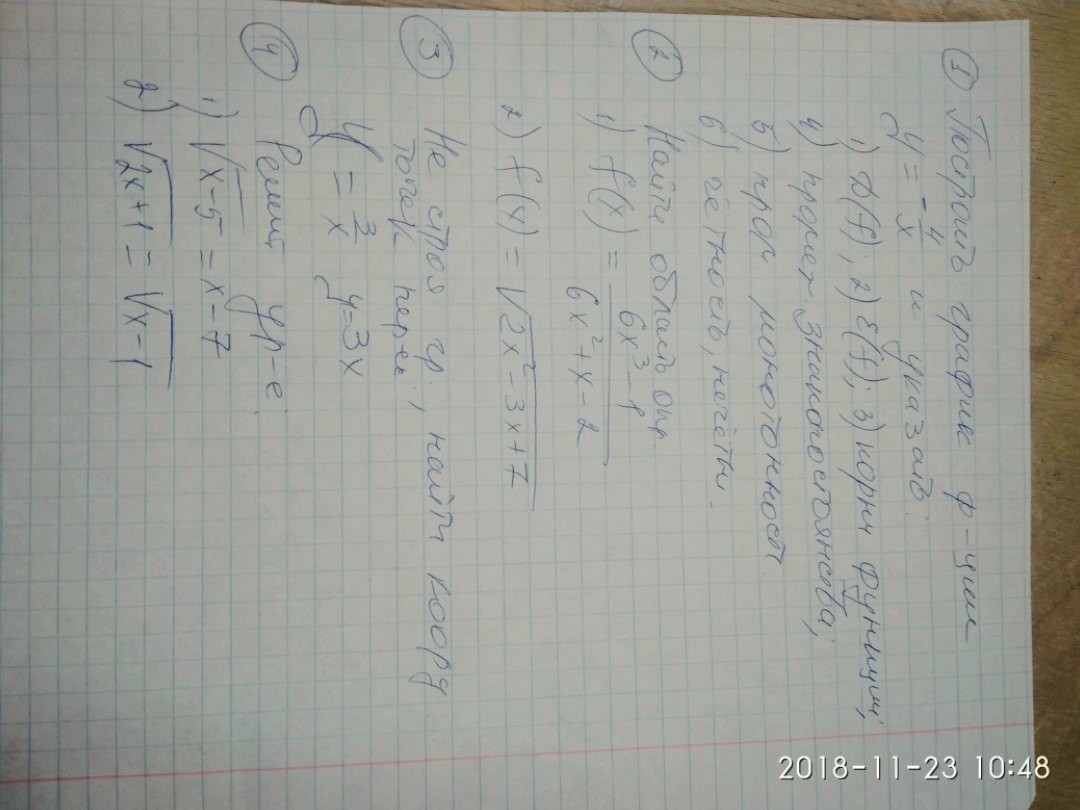 ① Построить график ф-ции
y = -4/x и указать:
1) D(f); 2) E(f); 3) корни функции;
4) промеж. знакопостоянства;
5) пром монотонност.
6) чётность, нечётн.
② Найти область опр.
1) f(x) = (6x³-1)/(6x²+x-2)
2) f(x) = √(2x²-3x+7)
③ Не строя гр., найти коорд.
точек перес.
y = 3/x y=3x
④ Решит ур-е:
1) √(x-5) = x-7
2) √(2x+1) = √(x-1)
2018-11-23 10:48